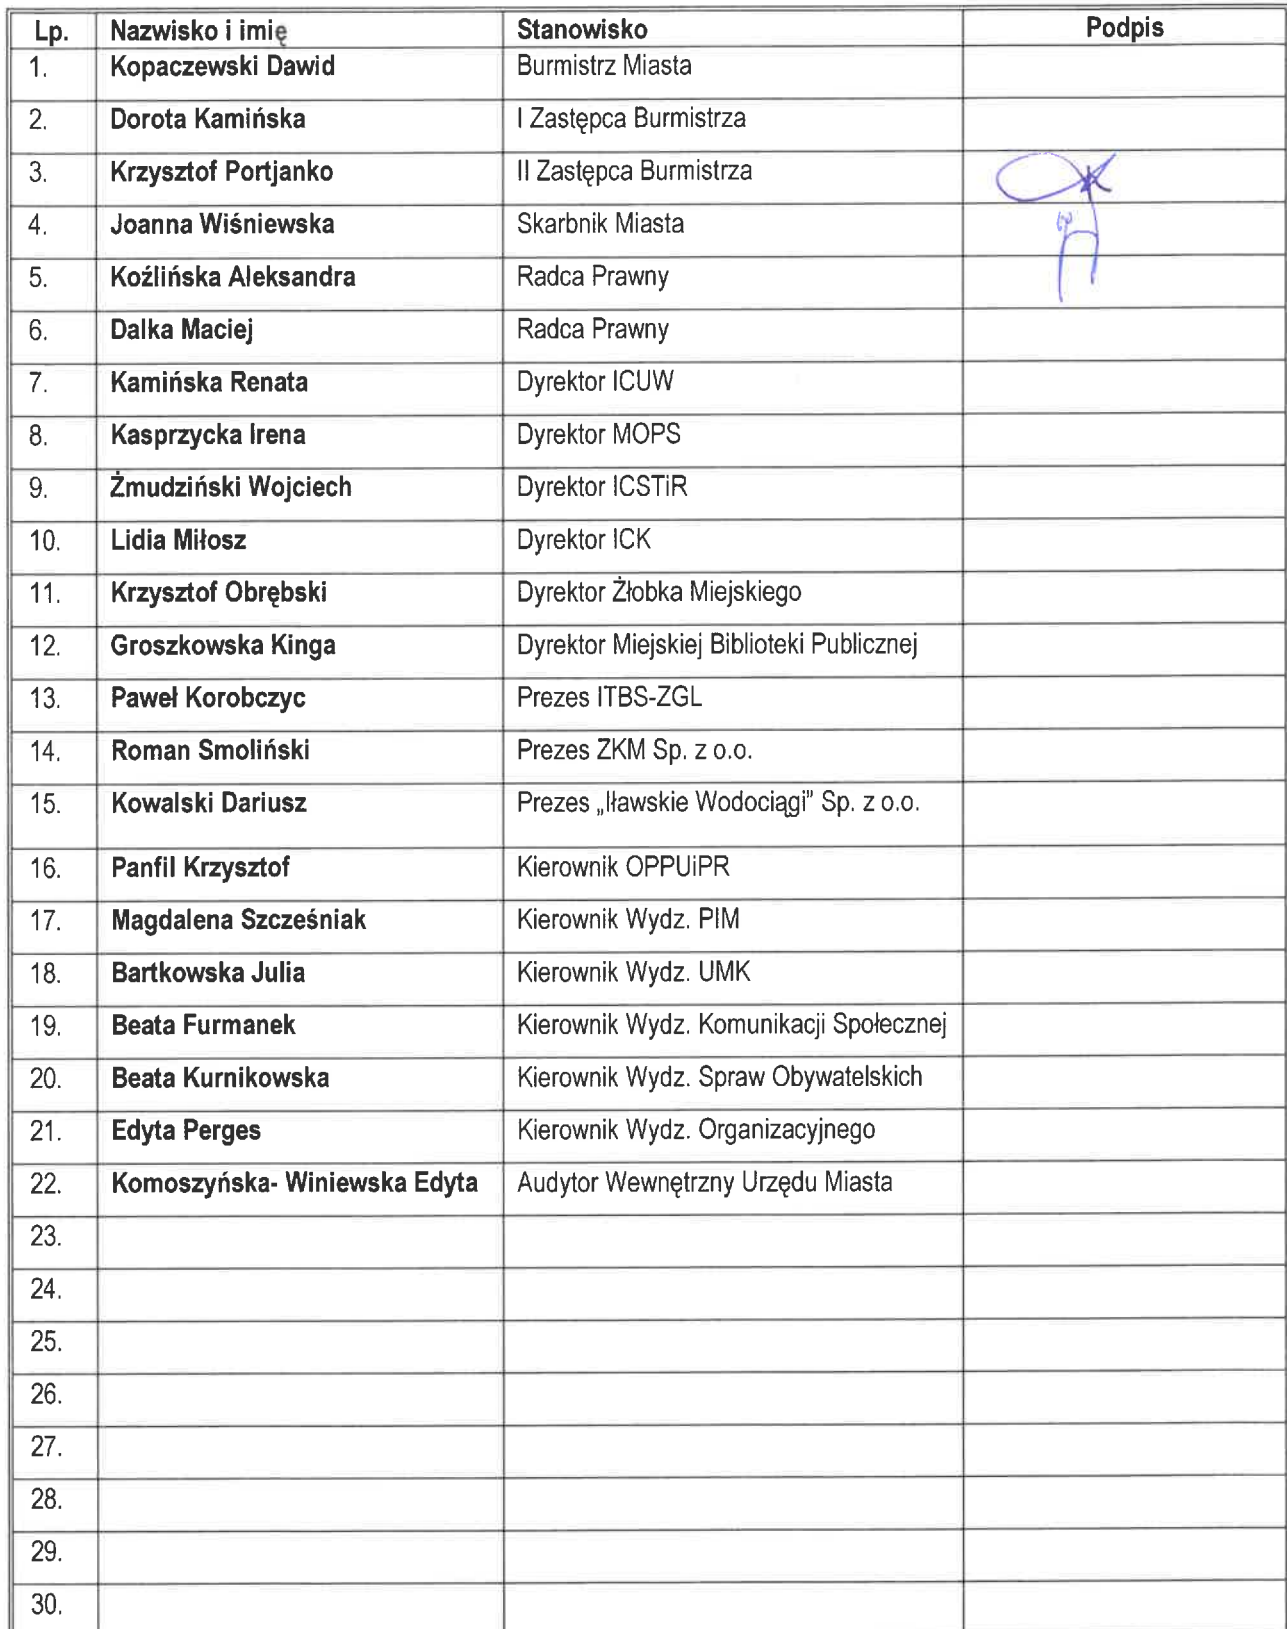 Lp. Nazwisko i imię Stanowisko Podpis
1. Kopaczewski Dawid Burmistrz Miasta
2. Dorota Kamińska I Zastępca Burmistrza
3. Krzysztof Portjanko II Zastępca Burmistrza
4. Joanna Wiśniewska Skarbnik Miasta
5. Koźlińska Aleksandra Radca Prawny
6. Dalka Maciej Radca Prawny
7. Kamińska Renata Dyrektor ICUW
8. Kasprzycka Irena Dyrektor MOPS
9. Żmudziński Wojciech Dyrektor ICSTiR
10. Lidia Miłosz Dyrektor ICK
11. Krzysztof Obrębski Dyrektor Żłobka Miejskiego
12. Groszkowska Kinga Dyrektor Miejskiej Biblioteki Publicznej
13. Paweł Korobczyc Prezes ITBS-ZGL
14. Roman Smoliński Prezes ZKM Sp. z o.o.
15. Kowalski Dariusz Prezes „Iławskie Wodociągi” Sp. z o.o.
16. Panfil Krzysztof Kierownik OPPUiPR
17. Magdalena Szcześniak Kierownik Wydz. PIM
18. Bartkowska Julia Kierownik Wydz. UMK
19. Beata Furmanek Kierownik Wydz. Komunikacji Społecznej
20. Beata Kurnikowska Kierownik Wydz. Spraw Obywatelskich
21. Edyta Perges Kierownik Wydz. Organizacyjnego
22. Komoszyńska- Winiewska Edyta Audytor Wewnętrzny Urzędu Miasta
23.
24.
25.
26.
27.
28.
29.
30.